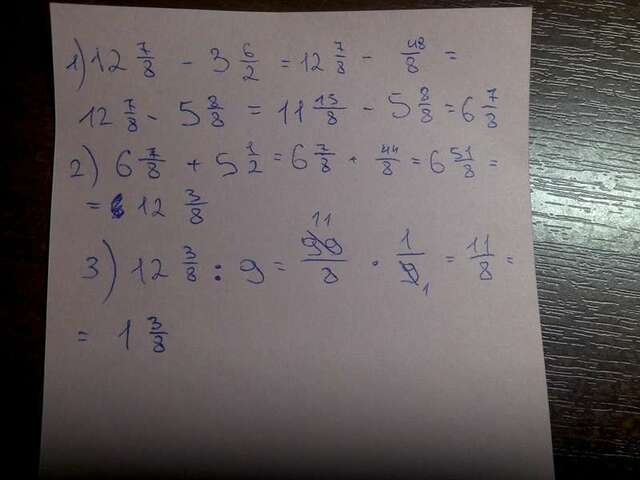 1) 12 7/8 - 3 6/2 = 12 7/8 - 48/8 =
12 7/8 - 5 8/8 = 11 15/8 - 5 8/8 = 6 7/8
2) 6 7/8 + 5 1/2 = 6 7/8 + 44/8 = 6 51/8 =
= 12 3/8
3) 12 3/8 : 9 = 99/8 11 · 1/9 1 = 11/8 =
= 1 3/8